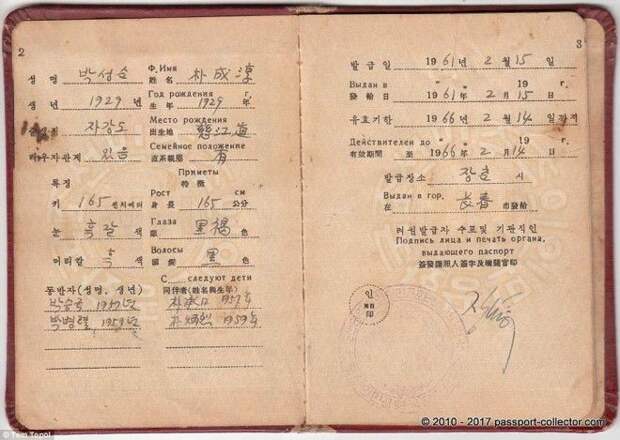 2
Ф. Имя
성 명 박성순 姓 名 朴成淳
Год рождения г.
생 년 1929년 生 年 1929年
Место рождения
자강도 出生地 慈江道
Семейное положение
배우자관계 있음 直系親屬 有
Приметы
특징 特 徵
Рост см
키 165 센치메터 身 長 165 公分
Глаза
눈 흑갈 색 眼 黑褐 色
Волосы
머리칼 흑 색 頭 髮 黑 色
С следуют дети
동반자(성명, 생년) 同伴者(姓名與生年)
1957년 1957年
박병렬 1959년 朴炳烈 1959年
3
발급일 1961년 2월 15일
Выдан в " " 19 г.
發給日 1961年 2月15日
유효기한 1966년 2월 14일까지
Действителен до " " 19 г.
有效期間 至 1966年 2月14日
발급장소 장춘 시
Выдан в гор.
在 長春 市發給
려권발급자 수표및 기관직인
Подпись лица и печать органа,
выдающего паспорт
簽發護照人簽字及機關官印
인
МП
印
© Tom Topol
© 2010 - 2017 passport-collector.com